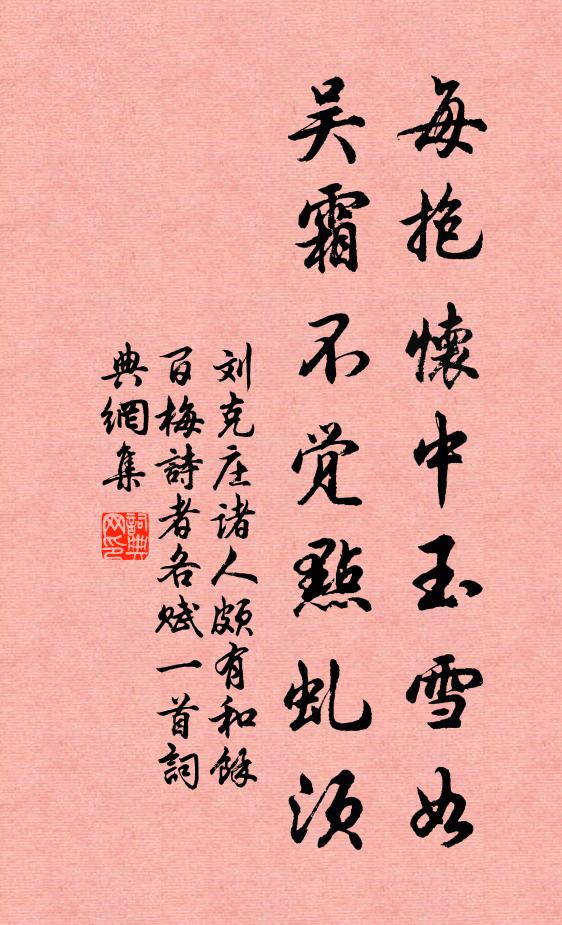 每抱懷中玉雪如
吴霜不觉點虬须
刘克庄诸人頗有和餘
百梅詩者各赋一首詞
典網集
詞典网印